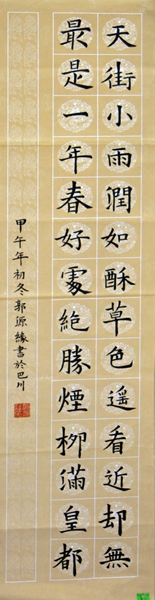 天街小雨潤如酥草色遥看近却無
最是一年春好處絶勝煙柳滿皇都
甲午年初冬郭源緣書於巴川